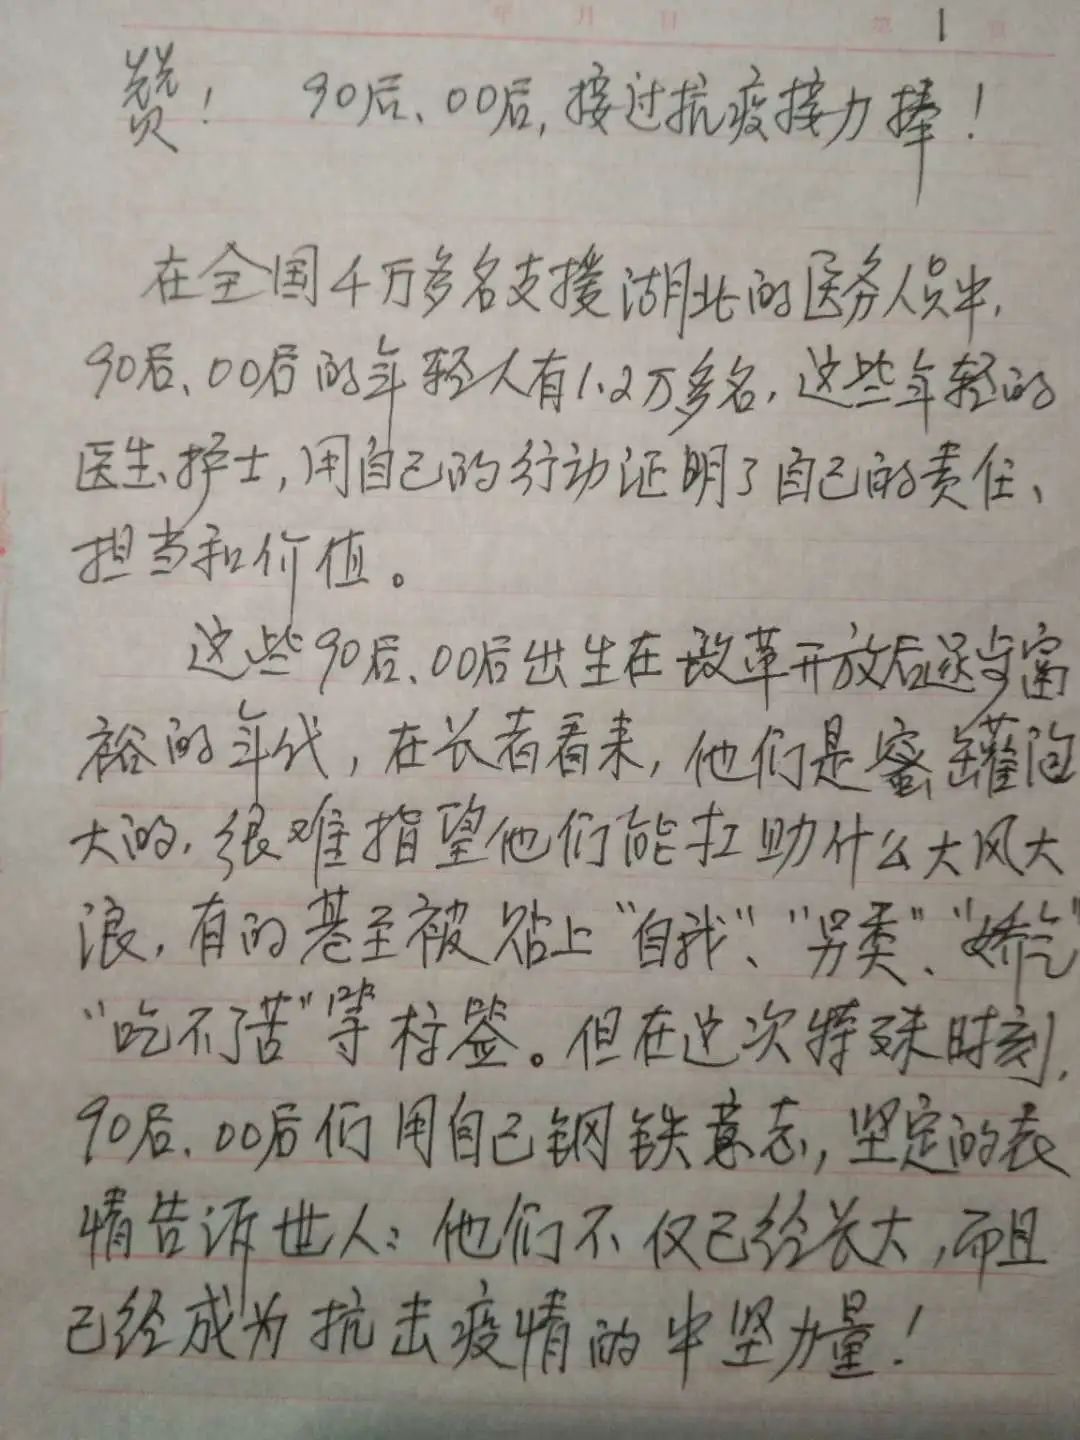 年 月 日 第 1 页
赞！ 90后、00后，接过抗疫接力捧！
在全国4万多名支援湖北的医务人员中，
90后、00后的年轻人有1.2万多名，这些年轻的
医生、护士，用自己的行动证明了自己的责任、
担当和价值。
这些90后、00后出生在改革开放后逐步富
裕的年代，在长者看来，他们是蜜罐泡
大的，很难指望他们能扛助什么大风大
浪，有的甚至被贴上“自我”、“另类”、“娇气”
“吃不了苦”等标签。但在这次特殊时刻，
90后、00后们用自己钢铁意志，坚定的表
情告诉世人：他们不仅已经长大，而且
已经成为抗击疫情的中坚力量！